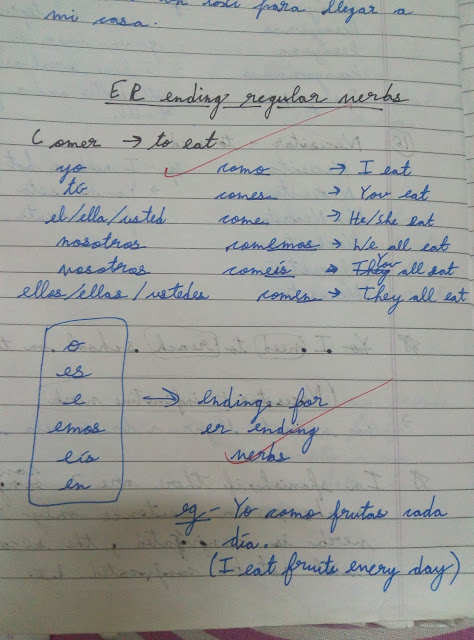 un taxi para llegar a
mi casa.
ER ending regular verbs
Comer → to eat
yo como → I eat
tú comes → You eat
el/ella/usted come → He/She eat
nosotros comemos → We all eat
vosotros comeís → You all eat
ellos/ellas/ustedes comen → They all eat
o
es
e → ending for
emos er ending
eís verbs
en
eg - Yo como frutas cada
día.
(I eat fruits every day)